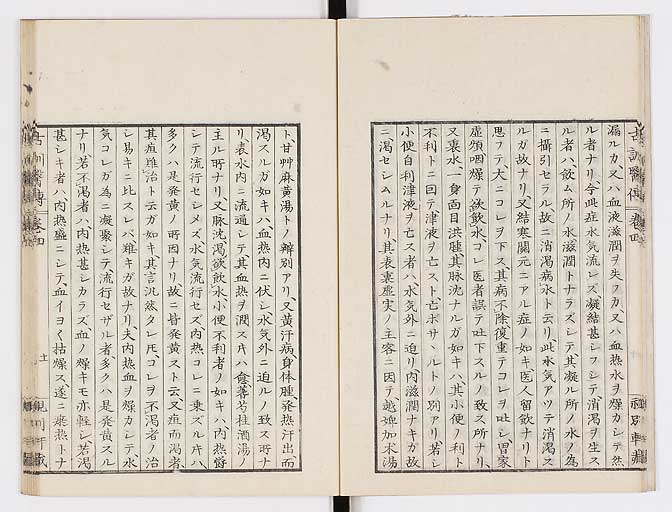 漏ルカ又ハ血液滋潤ヲ失フカ又ハ血熱水ヲ燥カシテ然
ル者ナリ今此症水気流レズ凝結甚シフシテ消渇ヲ生ス
ル者ハ飲ム所ノ水滋潤トナラズシテ其凝ル所ノ水ノ為
ニ攝引セラル故ニ消渇病水ト云リ此水気アツテ消渇ス
ルガ故ナリ又結寒關元ニアル症ノ如キ医人留飲ナリト
思フテ大ニコレヲ下ス其病不除復重テコレヲ吐シ胃家
虚煩咽燥テ欲飲水コレ医者誤テ吐下スルノ致ス所ナリ
又裏水一身面目洪腫其脉沈ナルガ如キハ其小便ノ利ト
不利トニ回テ津液ヲ亡ストセボサヾルトノ別アリ若シ
小便自利津液ヲ亡ス者ハ水気外ニ迫リ内滋潤ナキガ故
ニ渇セシムルナリ其表裏虚実ノ主客ニ因テ越婢加朮湯
古訓醫傳 巻四
ト甘艸麻黄湯トノ辨別アリ又黄汗病身体腫発熱汗出而
渇スルガ如キハ血熱内ニ伏シ水気外ニ迫ルノ致ス所ナ
リ表水内ニ流通シテ其血熱ヲ潤ス片ハ愈蓍芍桂酒湯ノ
主ル所ナリ又脉沈渇欲飲水小便不利者ノ如キハ内熱欝
シテ流行セシメズ水気流行セズ内熱コレニ乗ズル片ハ
多クハ是発黄ノ所因ナリ故ニ皆発黄スト云又疸而渇者
其疸難治ト云ガ如キ其言汎然タレ𪜈コレヲ不渇者ノ治
シ易キニ比スレバ難キガ故ナリ夫内熱血ヲ燥カシテ水
気コレガ為ニ凝聚シテ流行セザル者多クハ是発黄スル
ナリ若不渇者ハ内熱甚シカラズ血ノ燥キモ亦軽シ若渇
甚シキ者ハ内熱盛ニシテ血イヨく枯燥ス遂ニ柴熱トナ
古訓醫傳 巻四
土